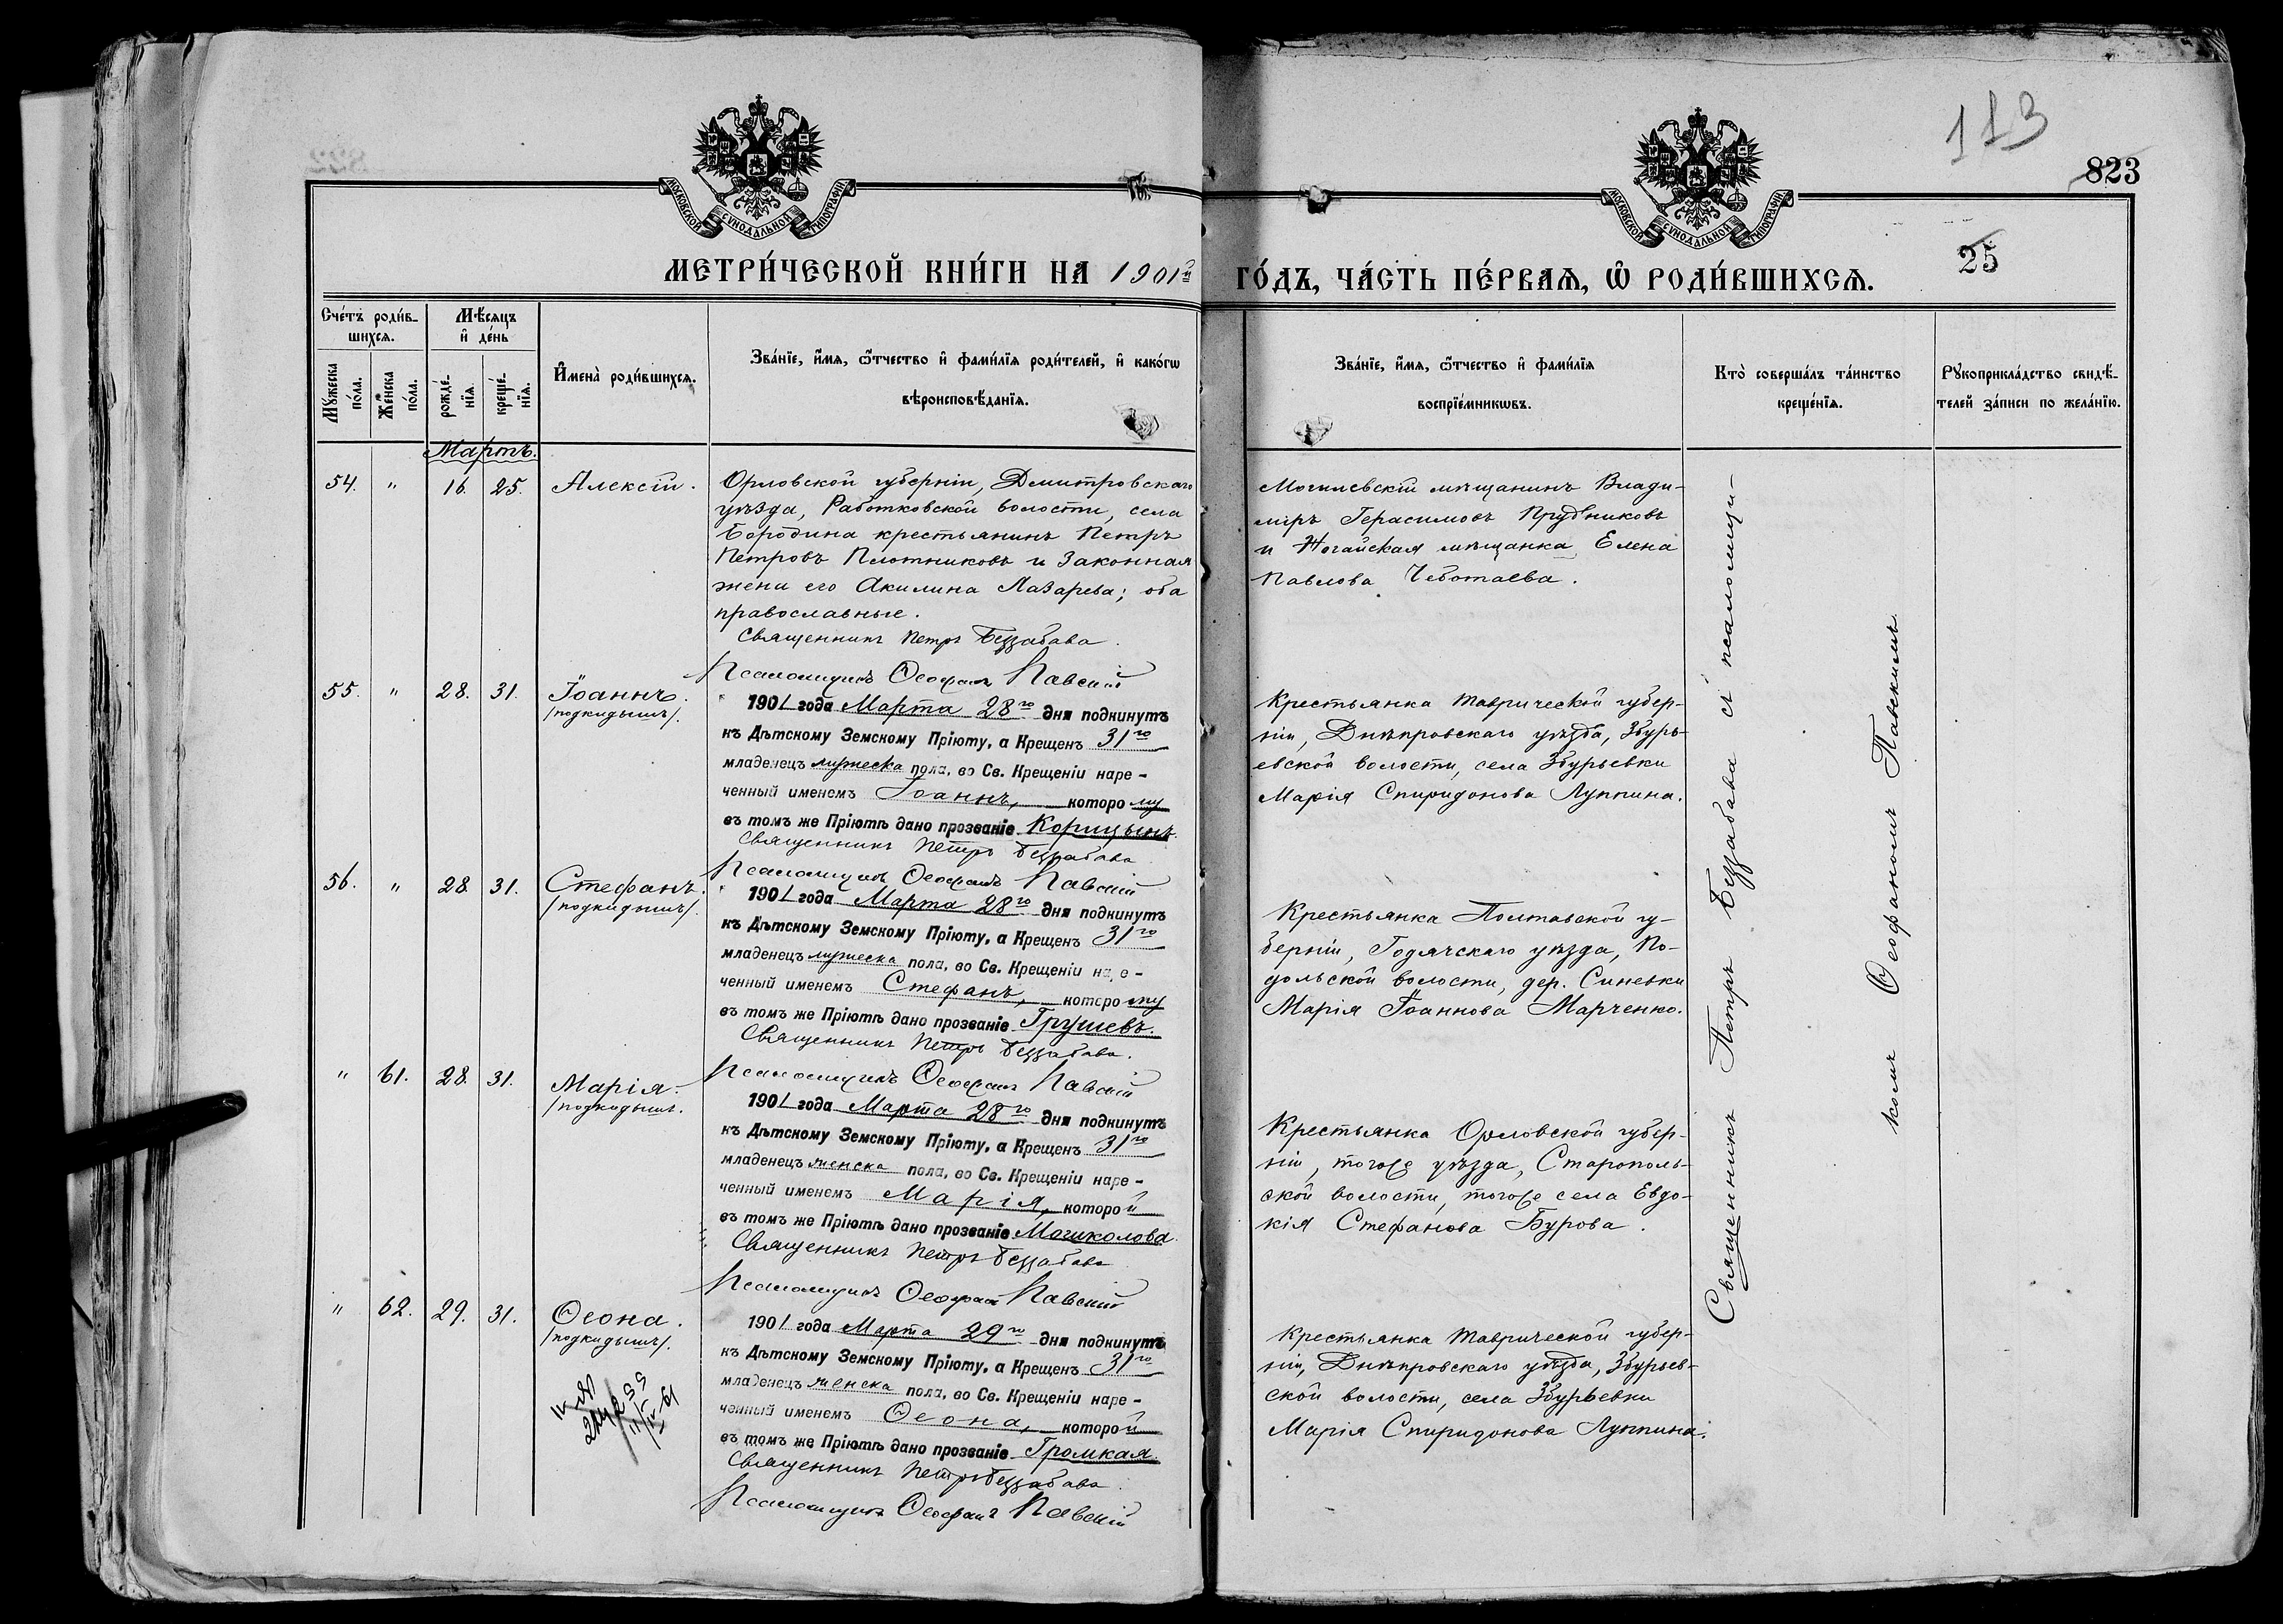 113
823
25
МОСКОВСКОЙ СѴНОДАЛЬНОЙ ТИПОГРАФІИ
МОСКОВСКОЙ СѴНОДАЛЬНОЙ ТИПОГРАФІИ
МЕТРИ́ЧЕСКОЙ КНИ́ГИ НА 1901й
ГО́ДЪ, ЧА́СТЬ ПЕ́РВАѦ, Ѡ҆ РОДИ́ВШИХСѦ.
Сче́тъ роди́в-
шихсѧ.
Мꙋ́жеска по́ла.
Же́нска по́ла.
Мѣ́сѧцъ
и҆ де́нь
рожде́-
нїѧ.
креще́-
нїѧ.
И҆мена̀ роди́вшихсѧ.
Зва́нїе, и҆́мѧ, ѻ҆́тчество и҆ фами́лїѧ роди́телей, и҆ како́гѡ
вѣроисповѣ́данїѧ.
Зва́нїе, и҆́мѧ, ѻ҆́тчество и҆ фами́лїѧ
воспрїе́мникѡвъ.
Кто̀ соверша́лъ та́инство
креще́нїѧ.
Рꙋкоприкла́дство свидѣ́-
телей за́писи по жела́нїю.
Мартъ.
54. " 16. 25. Алексій.
Орловской губерніи, Дмитровскаго
уѣзда, Работковской волости, села
Бородина крестьянинъ Петръ
Петровъ Плотниковъ и законная
жена его Акилина Лазарева; оба
православные.
Священникъ Петръ Беззабава.
Псаломщикъ Ѳеофанъ Павскій
Могилевскій мѣщанинъ Влади-
міръ Герасимовъ Прудниковъ
и Ногайская мѣщанка Елена
Павлова Чеботаева.
55. " 28. 31. Іоаннъ.
/подкидышъ/.
1901 года Марта 28го дня подкинутъ
къ Дѣтскому Земскому Пріюту, а Крещенъ 31го
младенецъ мужеска пола, во Св. Крещеніи наре-
ченный именемъ Іоаннъ, которому
въ томъ же Пріютѣ дано прозваніе Корицынъ.
Священникъ Петръ Беззабава
Псаломщикъ Ѳеофанъ Павскій
Крестьянка Таврической губер-
ніи, Днѣпровскаго уѣзда, Збурь-
евской волости, села Збурьевки
Марія Спиридонова Луппина.
56. " 28. 31. Стефанъ.
/подкидышъ/.
1901 года Марта 28го дня подкинутъ
къ Дѣтскому Земскому Пріюту, а Крещенъ 31го
младенецъ мужеска пола, во Св. Крещеніи наре-
ченный именемъ Стефанъ, которому
въ томъ же Пріютѣ дано прозваніе Грушевъ.
Священникъ Петръ Беззабава.
Псаломщикъ Ѳеофанъ Павскій
Крестьянка Полтавской гу-
берніи, Годячскаго уѣзда, По-
дольской волости, дер. Синевки
Марія Іоаннова Марченко.
" 61. 28. 31. Марія.
/подкидышъ.
1901 года Марта 28го дня подкинутъ
къ Дѣтскому Земскому Пріюту, а Крещенъ 31го
младенецъ женска пола, во Св. Крещеніи наре-
ченный именемъ Марія, которой
въ томъ же Пріютѣ дано прозваніе Могиколова.
Священникъ Петръ Беззабава
Псаломщикъ Ѳеофанъ Павскій
Крестьянка Орловской губер-
ніи, тогоже уѣзда, Старополь-
ской волости, тогоже села Евдо-
кія Стефанова Бурова.
" 62. 29. 31. Ѳеона.
/подкидышъ/.
1901 года Марта 29го дня подкинутъ
къ Дѣтскому Земскому Пріюту, а Крещенъ 31го
младенецъ женска пола, во Св. Крещеніи наре-
ченный именемъ Ѳеона, которой
въ томъ же Пріютѣ дано прозваніе Громкая.
Священникъ Петръ Беззабава.
Псаломщикъ Ѳеофанъ Павскій
Крестьянка Таврической губер-
ніи, Днѣпровскаго уѣзда, Збурьев-
ской волости, села Збурьевки
Марія Спиридонова Луппина.
Священникъ Петръ Беззабава съ псаломщи-
комъ Ѳеофаномъ Павскимъ.